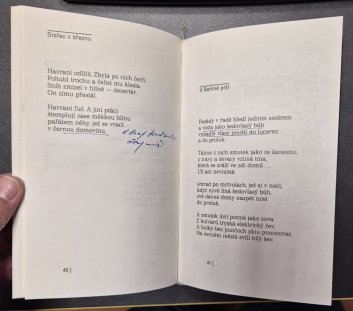 Stařec v březnu
Havrani odlítli. Zbyla po nich čerň.
Pohubl trochu a čelist mu klesla.
Sníh zmizel v hlíně — dezertér.
On zimu přestál.
Havrani fuč. A jiní ptáci
štemplují zase měkkou hlínu
pařátem něhy, jež se vrací
v černou domovinu.
40
V Berlíně prší
Fasády v řadě hledí jedním směrem
a voda jako šedovlasý bůh
vypadlé vlasy pouští do luceren
a do proluk.
Táhne z nich smutek jako ze šansonu,
z trávy a škváry vzlíná
která se sráží ve zdi domů
Už ani nevnímá
smrad po mrtvolách, jež si v noci,
když nyvě líná šedovlasý bůh,
své dávné domy naspět nosí
do proluk.
A smutek loví potmě jako sova.
Z bulvárů tryská elektrický
A holky bez punčoch jdou ponocovat.
Na černém městě svítí bílý šev.
41